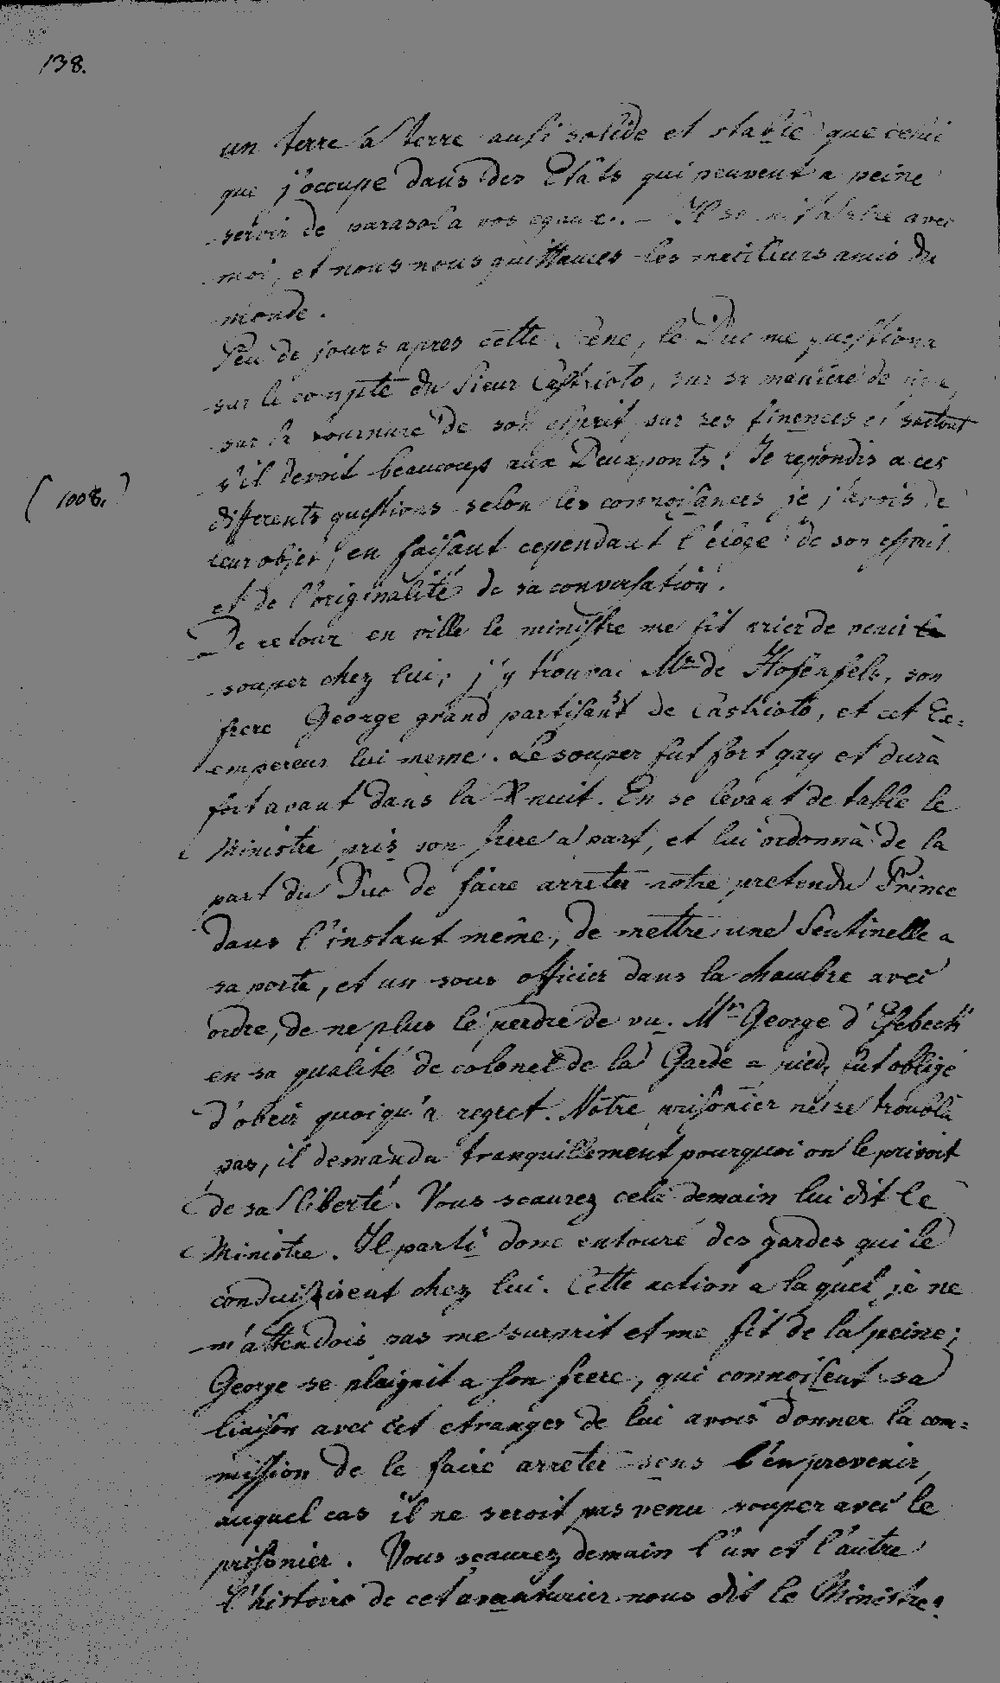 138.
un terre a terre ausi solide et stable que celui
que j'occupe dans des Etâts qui peuvent a peine
servir de parasol a vos egaux. — Il se mit a rire avec
moi, et nous nous quittames les meilieurs amis du
monde.
Peu de jours apres cette scene, le Duc me questiona
sur le compte du Sieur Castrioto, sur sa maniere de
sur la tournure de son esprit, sur ses finences et surtout
s'il devoit beaucoup aux Deuxponts! Je repondis a ces
(1008.)
differents questions selon les connoisances je j'avois de
leur objet, en faisant cependant l'éloge de son esprit
et de l'originalité de sa conversation.
De retour en ville le ministre me fit prier de venir
souper chez lui; j'y trouvai Mr de Hofenfels, son
frere George grand partisant de Castrioto, et cet Ex=
empereur lui meme. Le souper fut fort gay et dura
fort avant dans la nuit. En se levant de table le
Ministre, pris son frere a part, et lui ordonna de la
part du Duc de faire arreter notre pretendu Prince
dans l'instant même, de mettre une Sentinelle a
sa porte, et un sous officier dans la chambre avec
ordre, de ne plus le perdre de vu. Mr George d'Esebeck
en sa qualité de colonel de la Garde a pied, fut obligé
d'obeir quoiqu'a regret. Notre prisonier ne se troubla
pas, il demanda tranquillement pourquoi on le privoit
de sa liberté. Vous scaurez cela demain lui dit le
Ministre. Il parti donc entouré des gardes qui le
conduisirent chez lui. Cette action a laquel je ne
m'attendois pas me surprit et me fit de la peine;
George se plaignit a son frere, qui connoisent sa
liaison avec cet etranger de lui avois donner la com=
mission de le faire arreter sens l'en prevenir,
auquel cas il ne seroit pas venu souper avec le
prisonier. Vous scaurez demain l'un et l'autre
l'histoire de cet avanturier nous dit le Ministre.